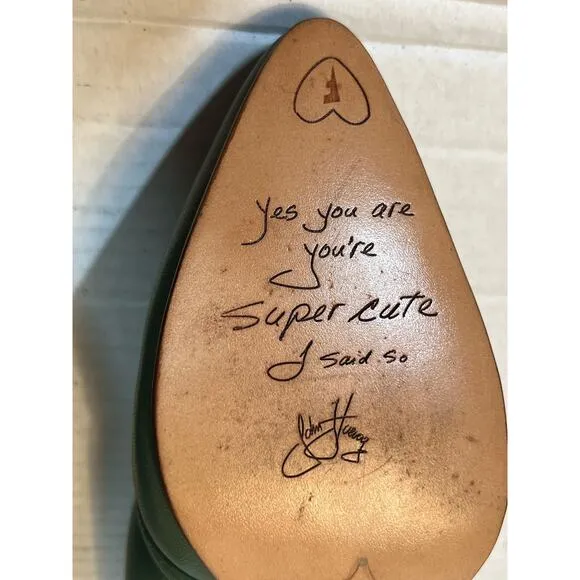 yes you are
you're
super cute
I said so
John Fluevog